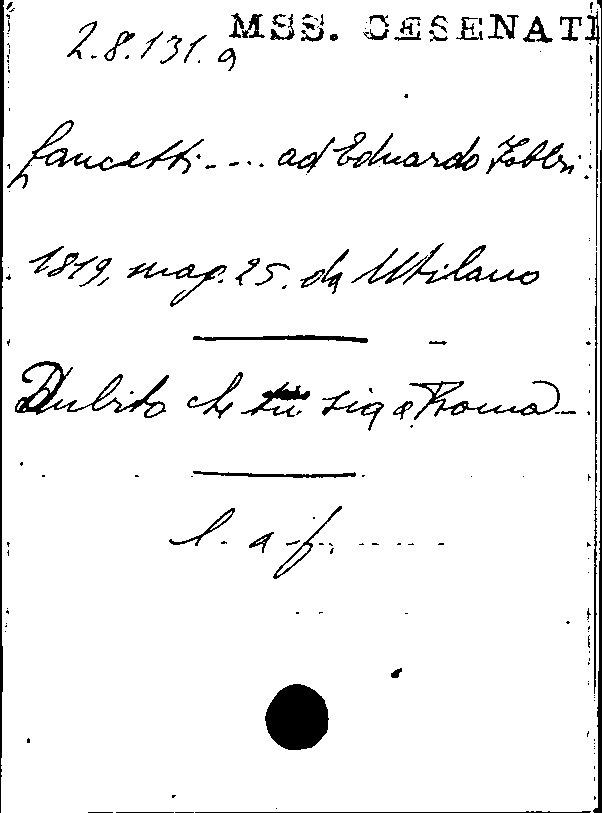 MSS. CESENATI
2.8.131.a
Lancetti .... ad Eduardo Fabbri
1819, mag. 25. da Milano
Dubito che tu sia a Roma
l. a. f. .....